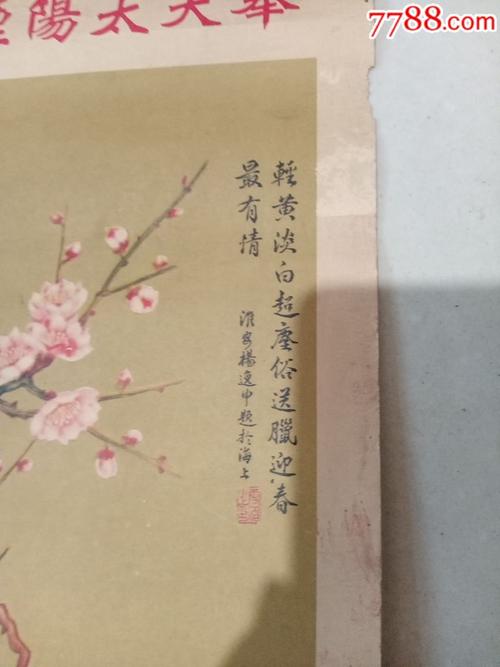 7788.com
奉天太陽
輕黃淡白超塵俗送臘迎春
最有情
淮安楊逸中題於海上